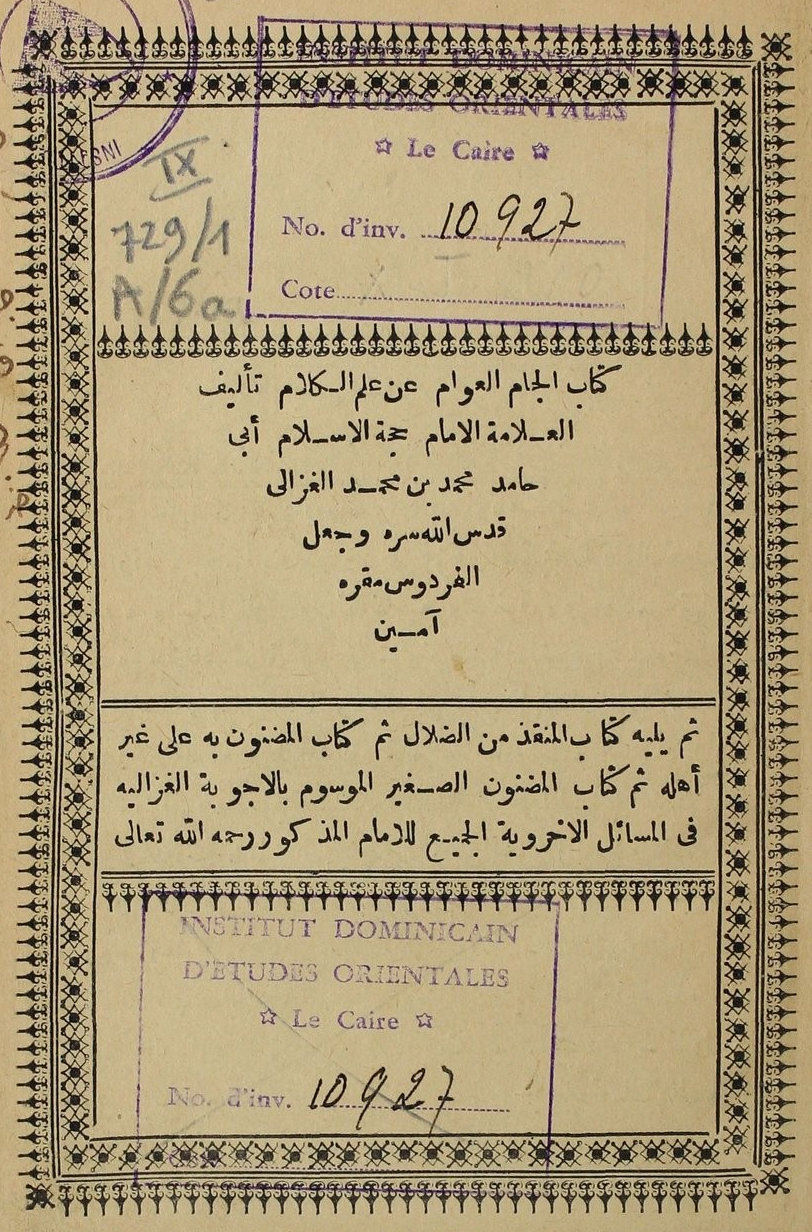 INSTITUT DOMINICAIN
D'ETUDES ORIENTALES
☆ Le Caire ☆
No. d'inv. 10927
Cote
IX
729/1
A/6a
كتاب الجام العوام عن علم الكلام تأليف
العلامة الامام حجة الاسلام أبى
حامد محمد بن محمد الغزالى
قدس الله سره وجعل
الفردوس مقره
آمين
ثم يليه كتاب المنقذ من الضلال ثم كتاب المضنون به على غير
أهله ثم كتاب المضنون الصغير الموسوم بالاجوبة الغزاليه
فى المسائل الاخروية الجميع للامام المذكور رحمه الله تعالى
INSTITUT DOMINICAIN
D'ETUDES ORIENTALES
☆ Le Caire ☆
No. d'inv. 10927